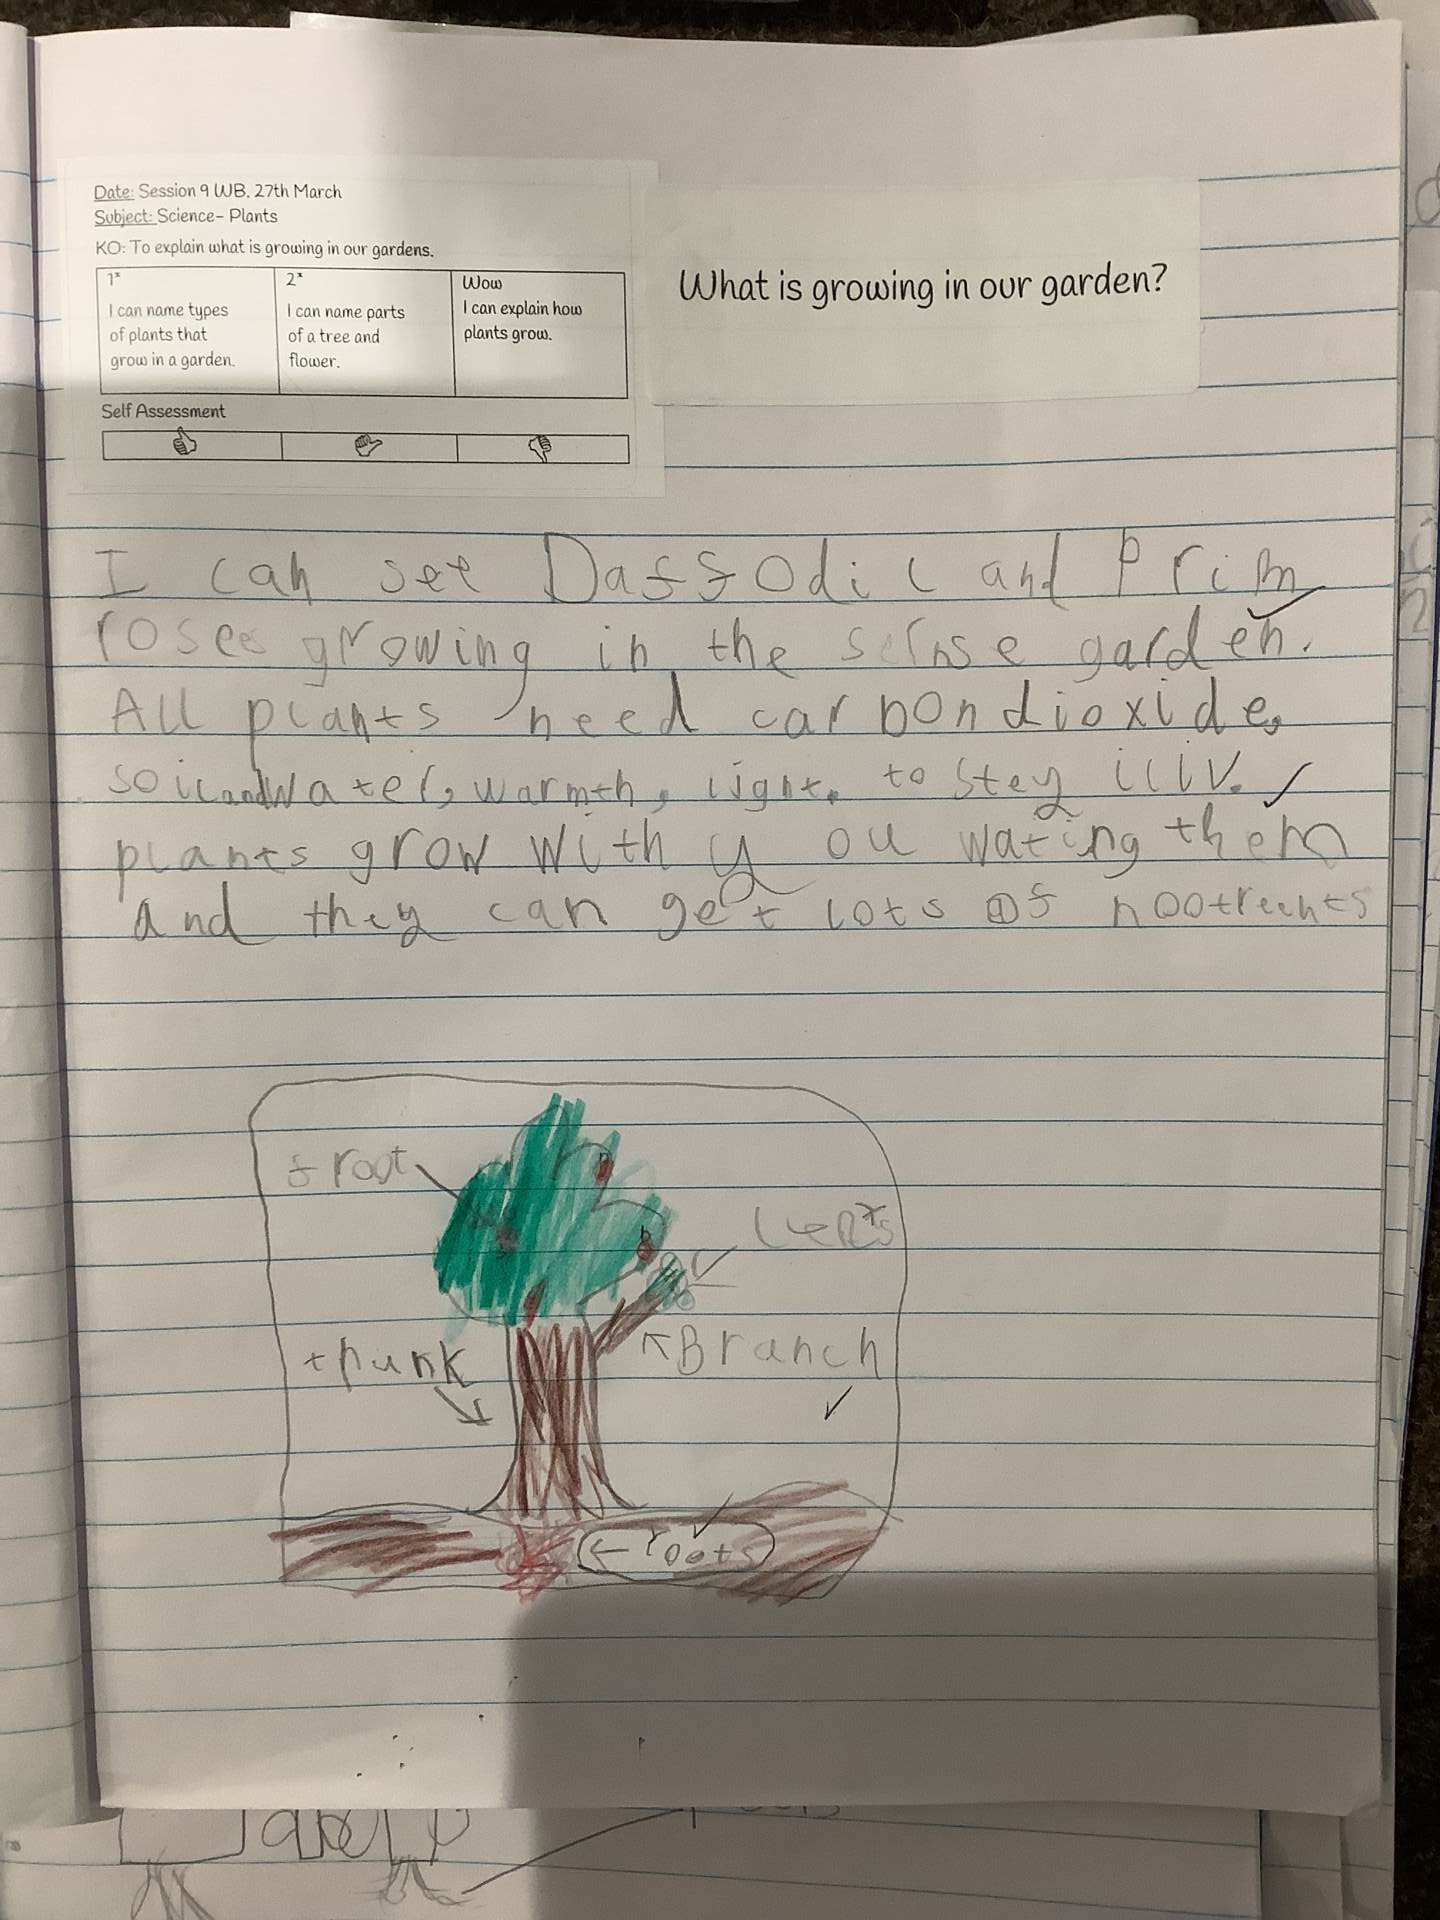 Date: Session 9 WB. 27th March
Subject: Science- Plants
KO: To explain what is growing in our gardens.
1*
I can name types
of plants that
grow in a garden.
2*
I can name parts
of a tree and
flower.
Wow
I can explain how
plants grow.
Self Assessment
What is growing in our garden?
I can see Daffodil and Prim
roses growing in the sense garden.
All plants need carbondioxide,
soil and water, warmth, light. to stey iliv.
plants grow with you wating them
and they can get lots of nootreents
froot
thunk
Branch
roots